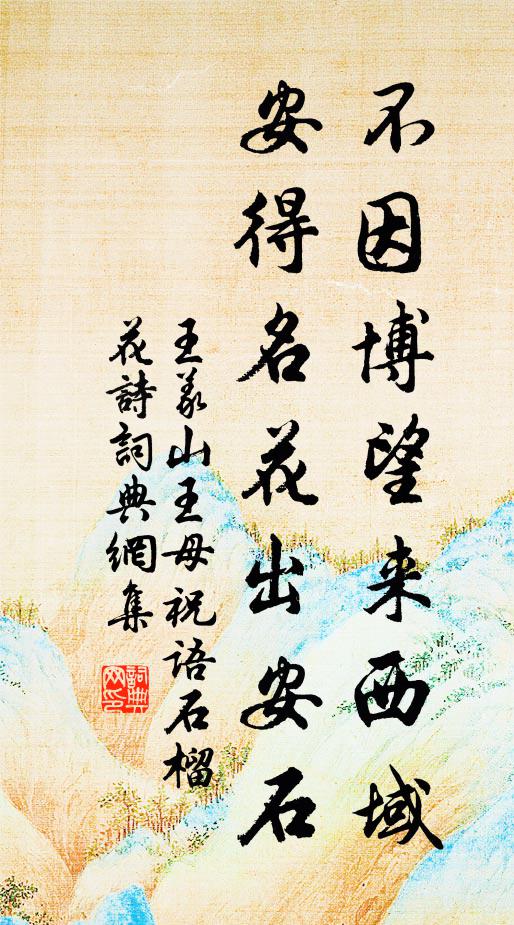 不因博望来西域
安得名花出安石
王义山王母祝语石榴
花詩詞典網集
詞典网印